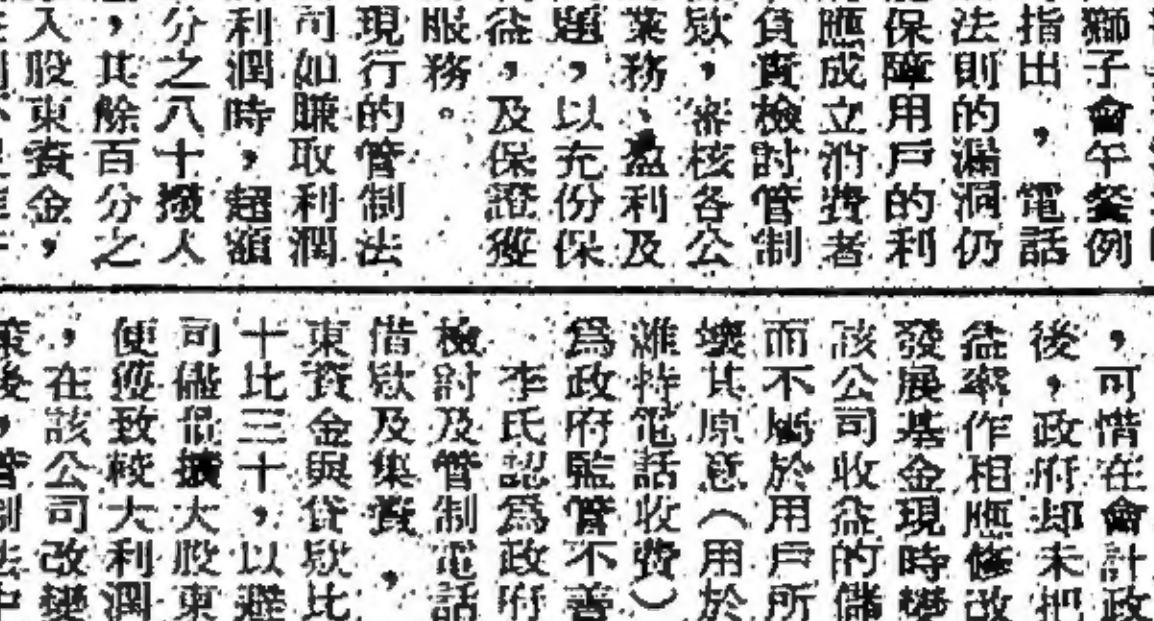 獅子會午餐例
指出，電話
法則的漏洞仍
保障用戶的利
應成立消費者
負責檢討管制
欵，審核各公
業務、盈利及
題，以充份保
益，及保證獲
服務。
現行的管制法
司如賺取利潤
利潤時，超額
分之八十撥入
，其餘百分之
入股東資金，
，可惜在會計政
後，政府却未把
益率作相應修改
發展基金現時變
該公司收益的儲
而不屬於用戶所
壞其原意（用於
維持電話收費）
為政府監管不善
李氏認為政府
檢討及管制電話
借欵及集資，
東資金與貸欵比
十比三十，以避
司儘量擴大股東
使獲致較大利潤
，在該公司改變
策後，管制法中